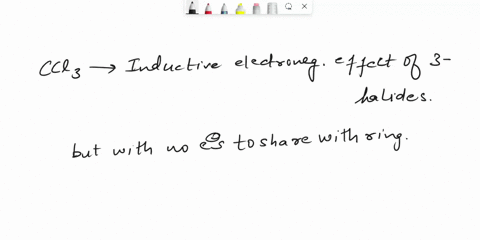 CCl3 → Inductive electroneg. effect of 3-
halides.
but with no e⊖s to share with ring.